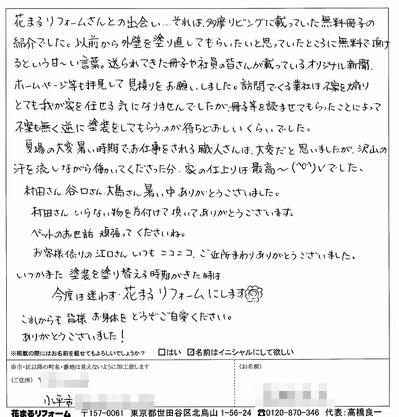 花まるリフォームさんとの出会い…それは、多摩リビングに載っていた無料冊子の
紹介でした。以前から外壁を塗り直してもらいたいと思っていたところに無料で頂け
るという甘〜い言葉。送られてきた冊子や社員の皆さんが載っているオリジナル新聞、
ホームページ等も拝見して見積りをお願いしました。訪問でくる業社は不安を煽り
とても我が家を任せる気になりませんでしたが、冊子等を読ませてもらったことによって
不安も無く逆に塗装をしてもらうのが待ちどおしいくらいでした。
夏場の大変暑い時期でお仕事をされる職人さんは、大変だと思いましたが、沢山の
汗を流しながら働いてくださった分、家の仕上りは最高〜(^o^)vでした。
村田さん、谷口さん、大島さん暑い中ありがとうございました。
村田さん、いらない物を片付けて頂いてありがとうございます。
ペットのお世話 頑張ってくださいね。
お客様係りの江口さん いつも ニコニコ、ご近所まわりありがとうございました。
いつかまた 塗装を塗り替える時期がきた時は
今度は迷わず・花まるリフォームにします
これからも皆様 お身体をどうぞご自愛ください。
ありがとうございました!
※掲載の際にはお名前を載せてもよろしいでしょうか? □はい ☑名前はイニシャルにして欲しい
※市・区以降の町名・番地は見えないように加工致します
(ご住所) (お名前)
小平市
花まるリフォーム 〒157-0061 東京都世田谷区北烏山1-56-24 ☎0120-870-346 代表:高橋良一